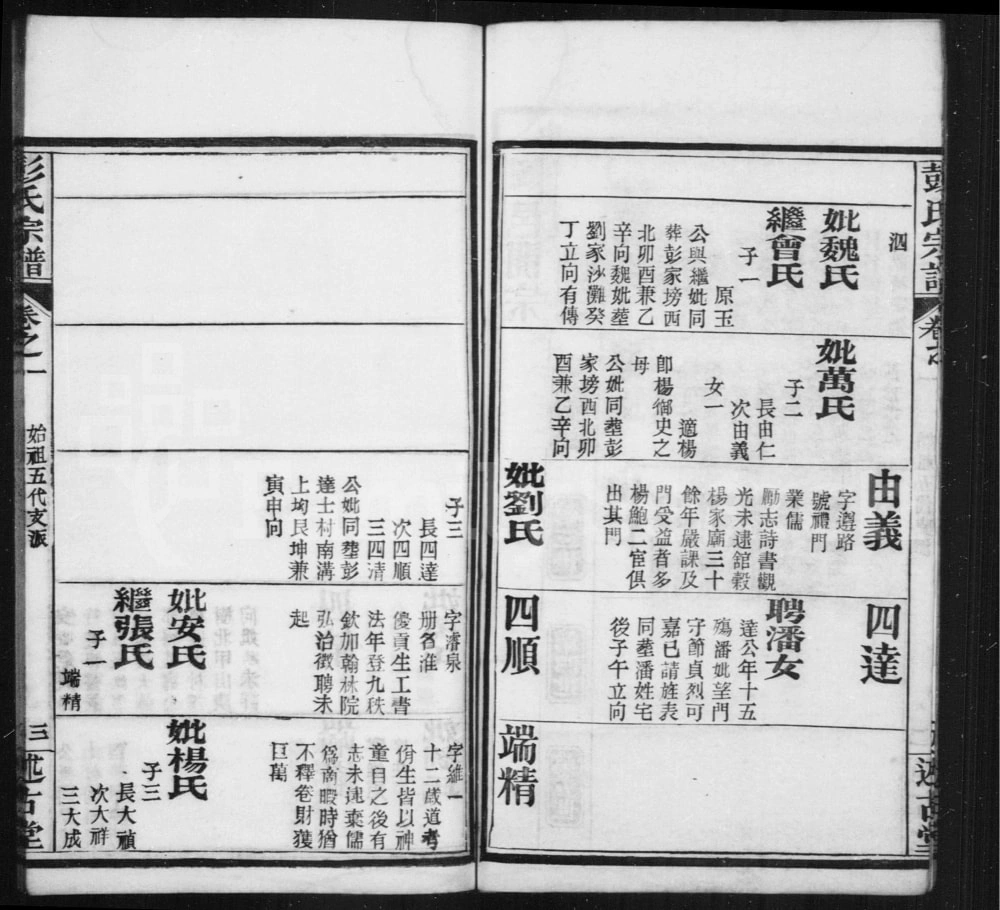 彭氏宗譜
卷之一
述古堂
泗
妣魏氏
繼曾氏
子一
原玉
公與繼妣同
葬彭家塝西
北卯酉兼乙
辛向魏妣塟
劉家沙灘癸
丁立向有傳
妣萬氏
子二
長由仁
次由義
女一
適楊
卽楊御史之
母
公妣同塟彭
家塝西北卯
酉兼乙辛向
由義
字遵路
號禮門
業儒
勵志詩書觀
光未逮舘穀
楊家廟三十
餘年嚴課及
門受益者多
楊鮑二宦俱
出其門
妣劉氏
四達
聘潘女
達公年十五
殤潘妣望門
守節貞烈可
嘉已請旌表
同塟潘姓宅
後子午立向
四順
端精
子三
長四達
次四順
三四清
公妣同塟彭
達士村南溝
上坳艮坤兼
寅申向
字濬泉
册名淮
優貢生工書
法年登九秩
欽加翰林院
弘治徵聘未
起
妣安氏
繼張氏
子一
端精
字維一
十二歲道考
佾生皆以神
童目之後有
志未逮棄儒
爲商暇時猶
不釋卷財獲
巨萬
妣楊氏
子三
長大禎
次大祥
三大成
彭氏宗譜
卷之一
始祖五代支派
三
述古堂